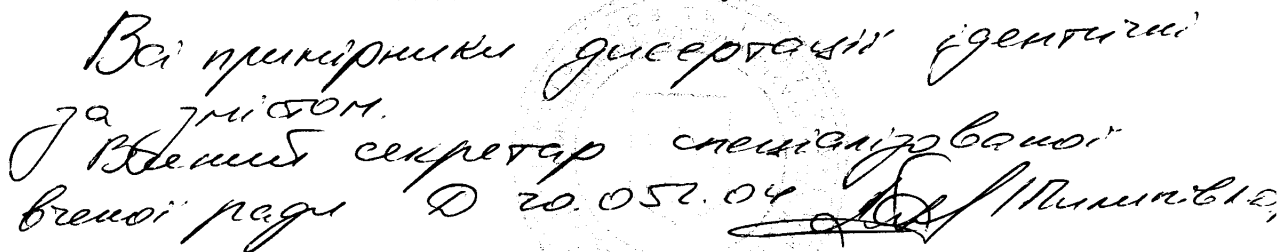 Всі примірники дисертації ідентичні
за змістом.
Вчений секретар спеціалізованої
вченої ради Д 20.052.04